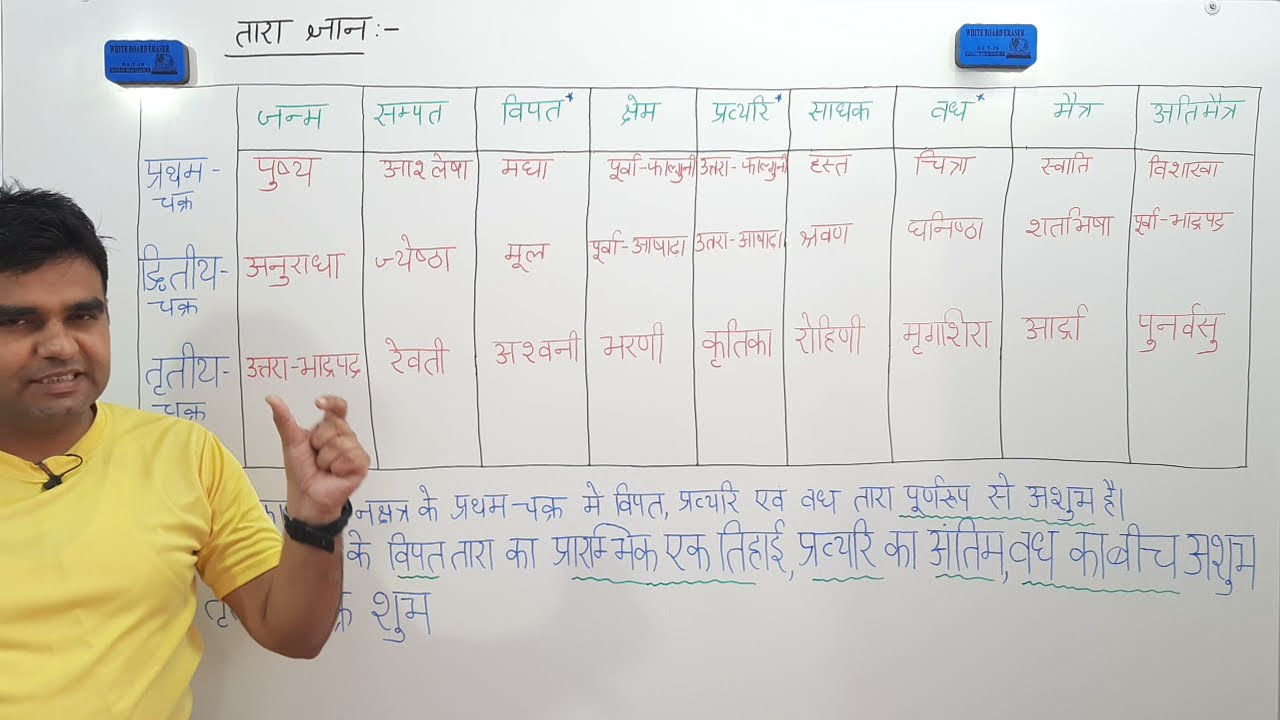 तारा ज्ञान :-
WHITE BOARD ERASER
WHITE BOARD ERASER
जन्म सम्पत विपत* क्षेम प्रत्यरि* साधक वध* मैत्र अतिमैत्र
प्रथम-चक्र पुष्य आश्लेषा मघा पूर्वा-फाल्गुनी उत्तरा-फाल्गुनी हस्त चित्रा स्वाति विशाखा
द्वितीय-चक्र अनुराधा ज्येष्ठा मूल पूर्वा-आषाढ़ा उतरा-आषाढ़ा श्रवण घनिष्ठा शतभिषा पूर्वा-भाद्रपद्र
तृतीय-चक्र उत्तरा-भाद्रपद्र रेवती अश्वनी भरणी कृतिका रोहिणी मृगशिरा आर्द्रा पुनर्वसु
नक्षत्र के प्रथम-चक्र मे विपत, प्रत्यरि एवं वध तारा पूर्णरूप से अशुभ है।
के विपत तारा का प्रारम्भिक एक तिहाई, प्रत्यरि का अंतिम, वध का बीच अशुभ
शुभ